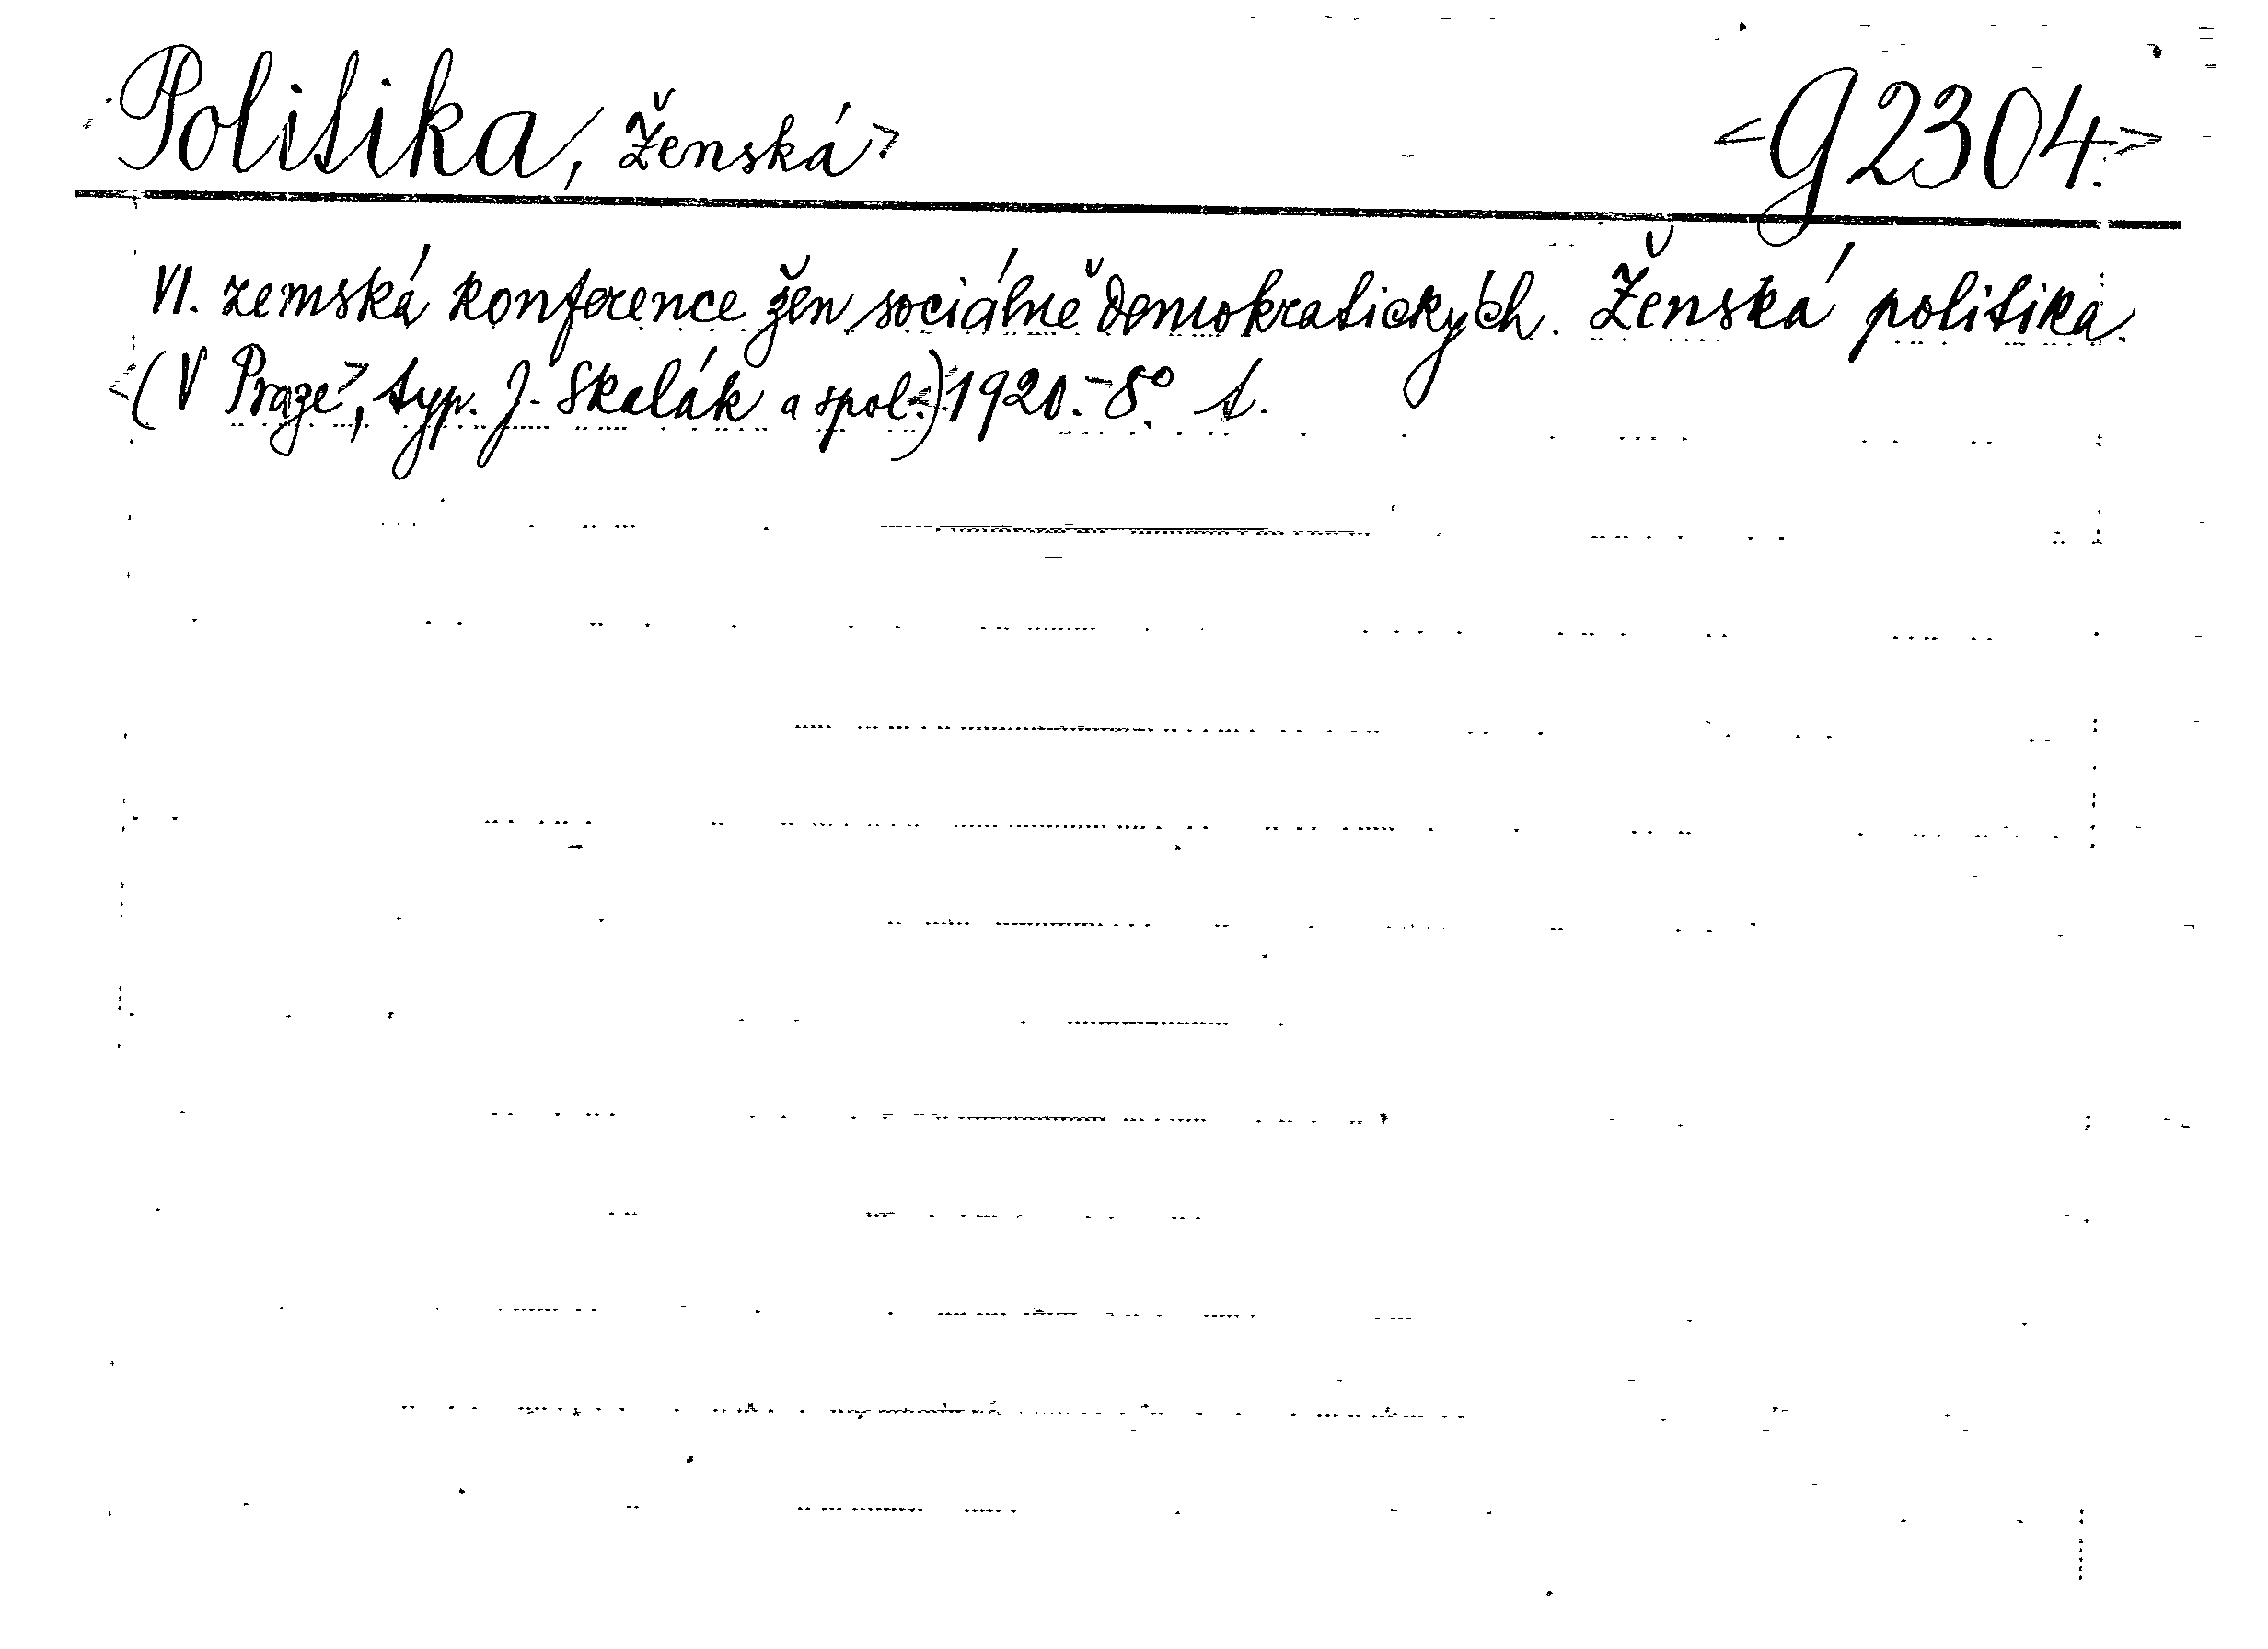 <Politika, Ženská> <G 2304.>
VI. zemská konference žen sociálně demokratických. Ženská politika.
<(V Praze>, typ. J. Skalák a spol.<) 1920. - 8°. t.